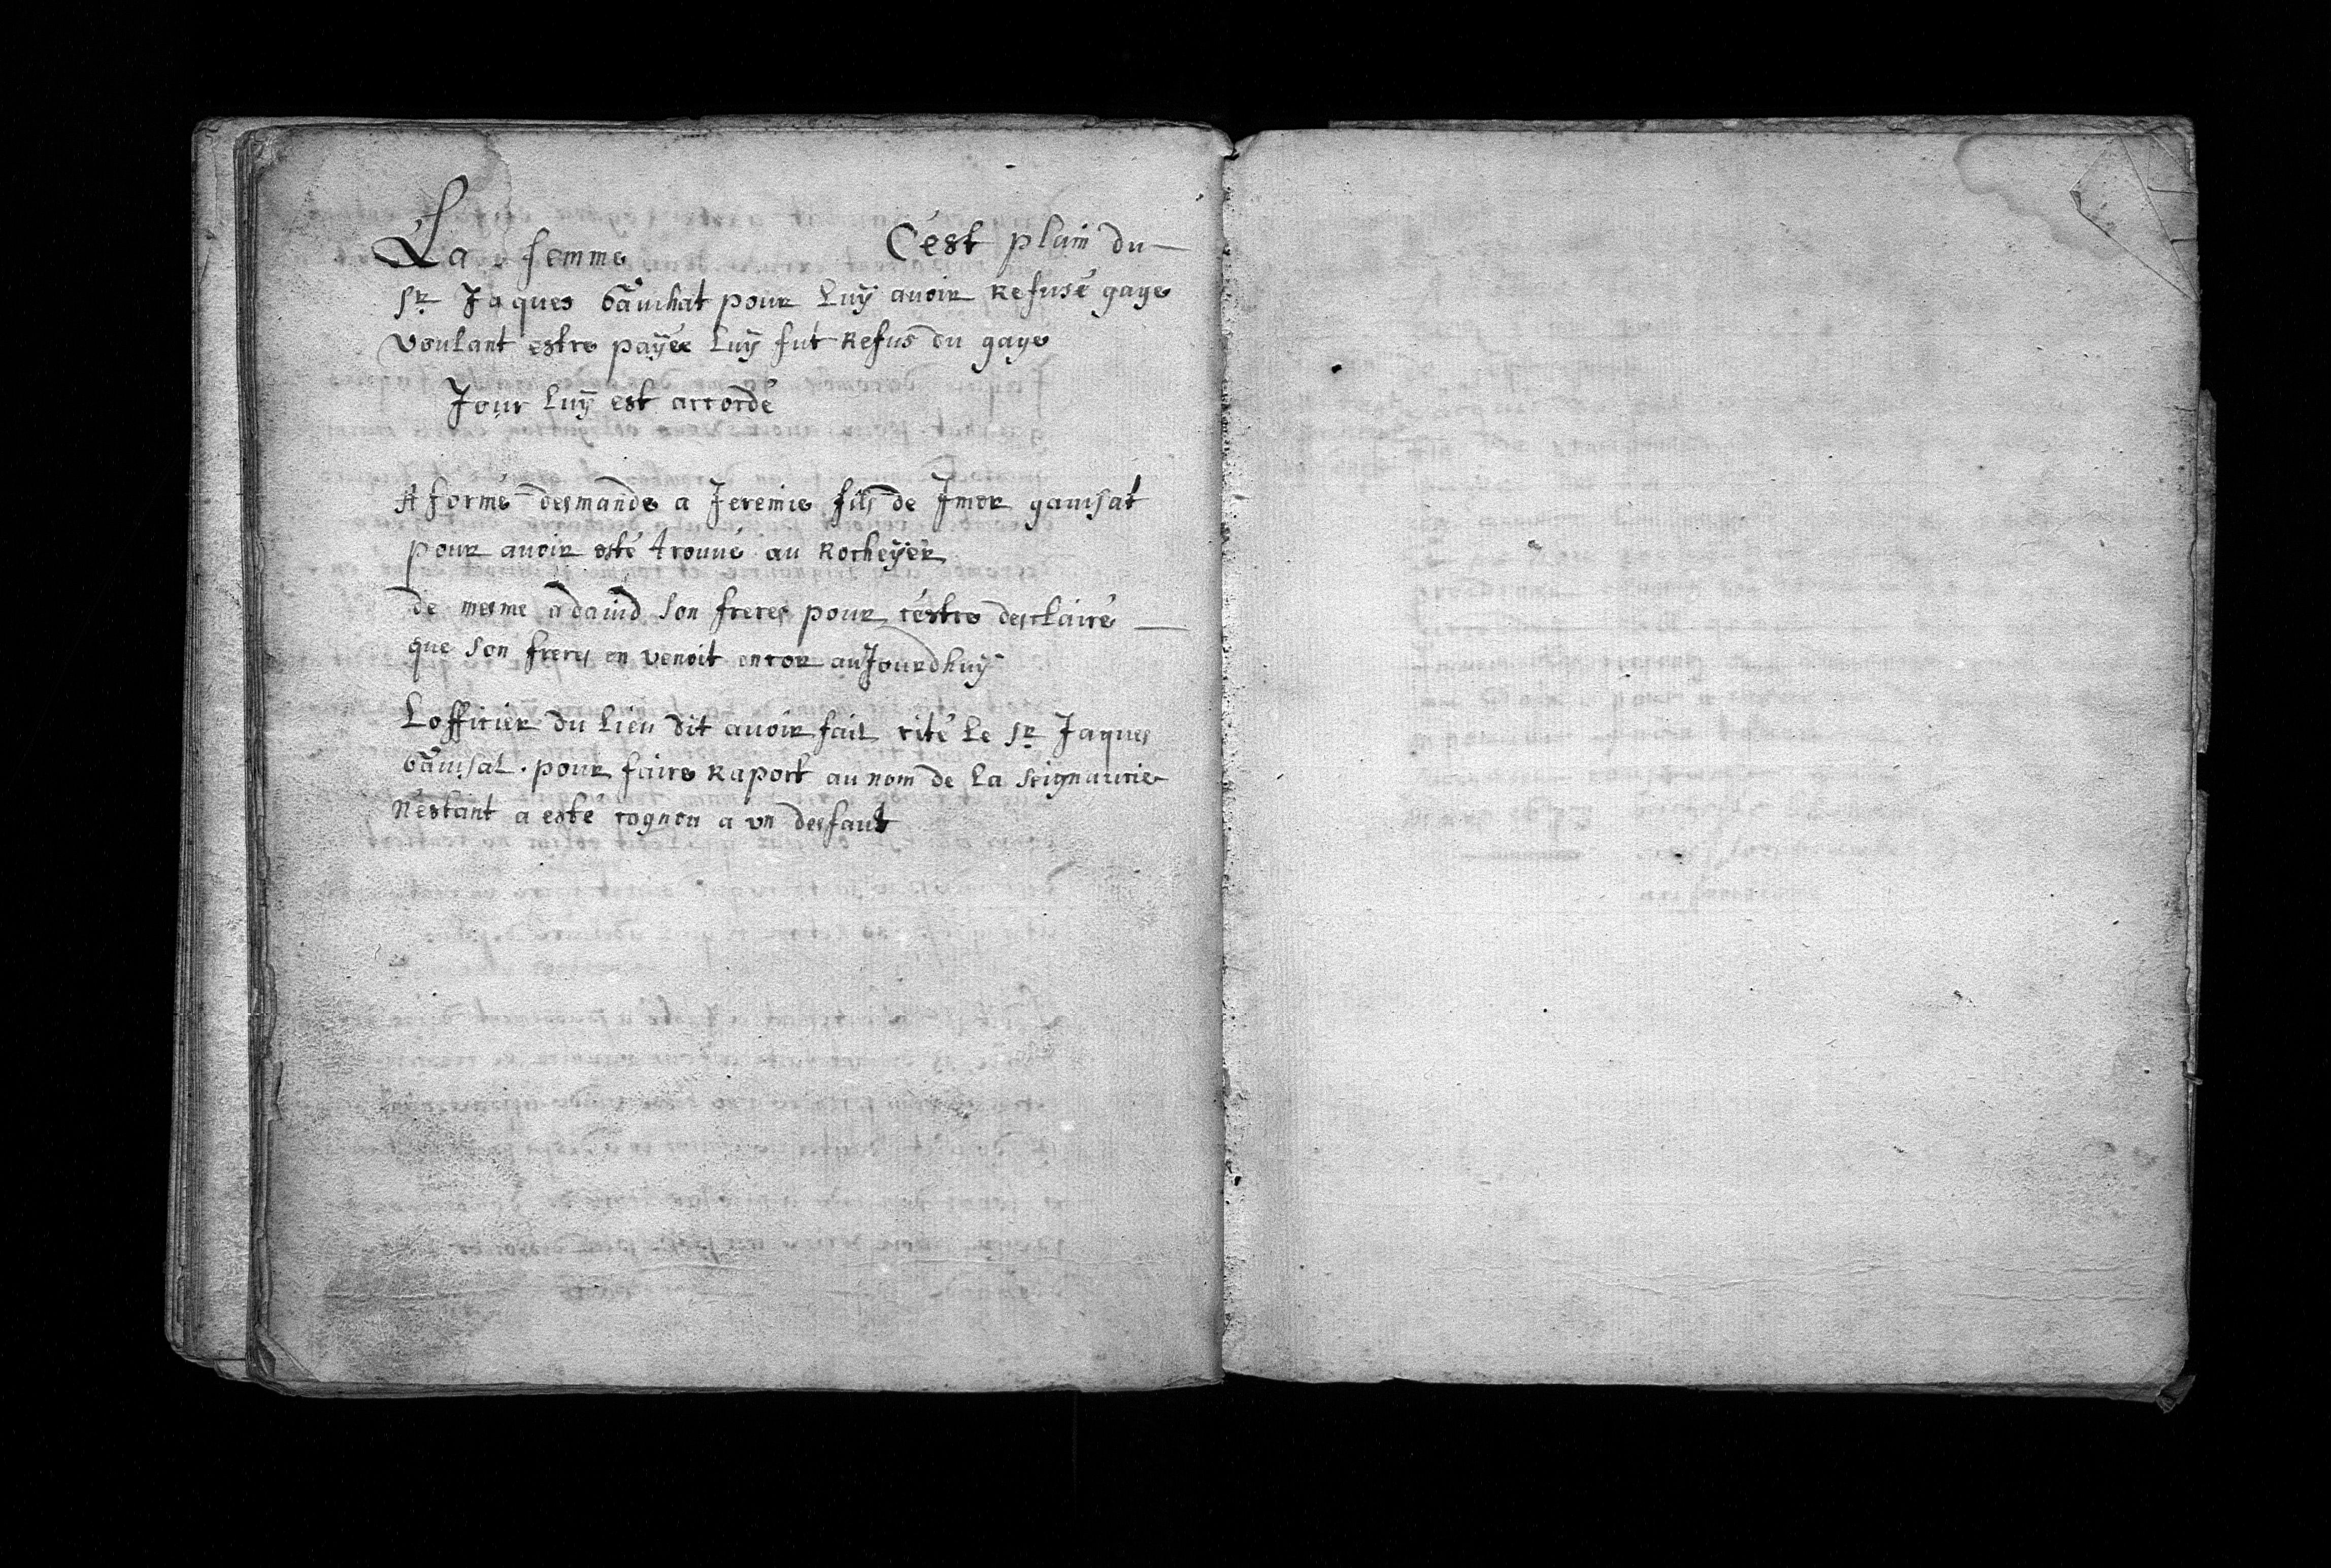 La femme C'est plain du
Sr Jaques Gauchat pour luÿ auoir Refusé gage
voulant estre payée luÿ fut Refus du gage
Jour luÿ est accordé
A formé desmande a Jeremie fils de Imer gauisat
pour auoir esté trouué au Rocheÿer
de mesme a dauid son freres pour c'estre desclairé
que son freres en venoit encor au Jourdhuÿ
L officier du lieu dit auoir fait cité le Sr Jaques
Gauisat. pour faire Raport au nom de la seignaurie
N'estant a esté cogneu a vn desfaut